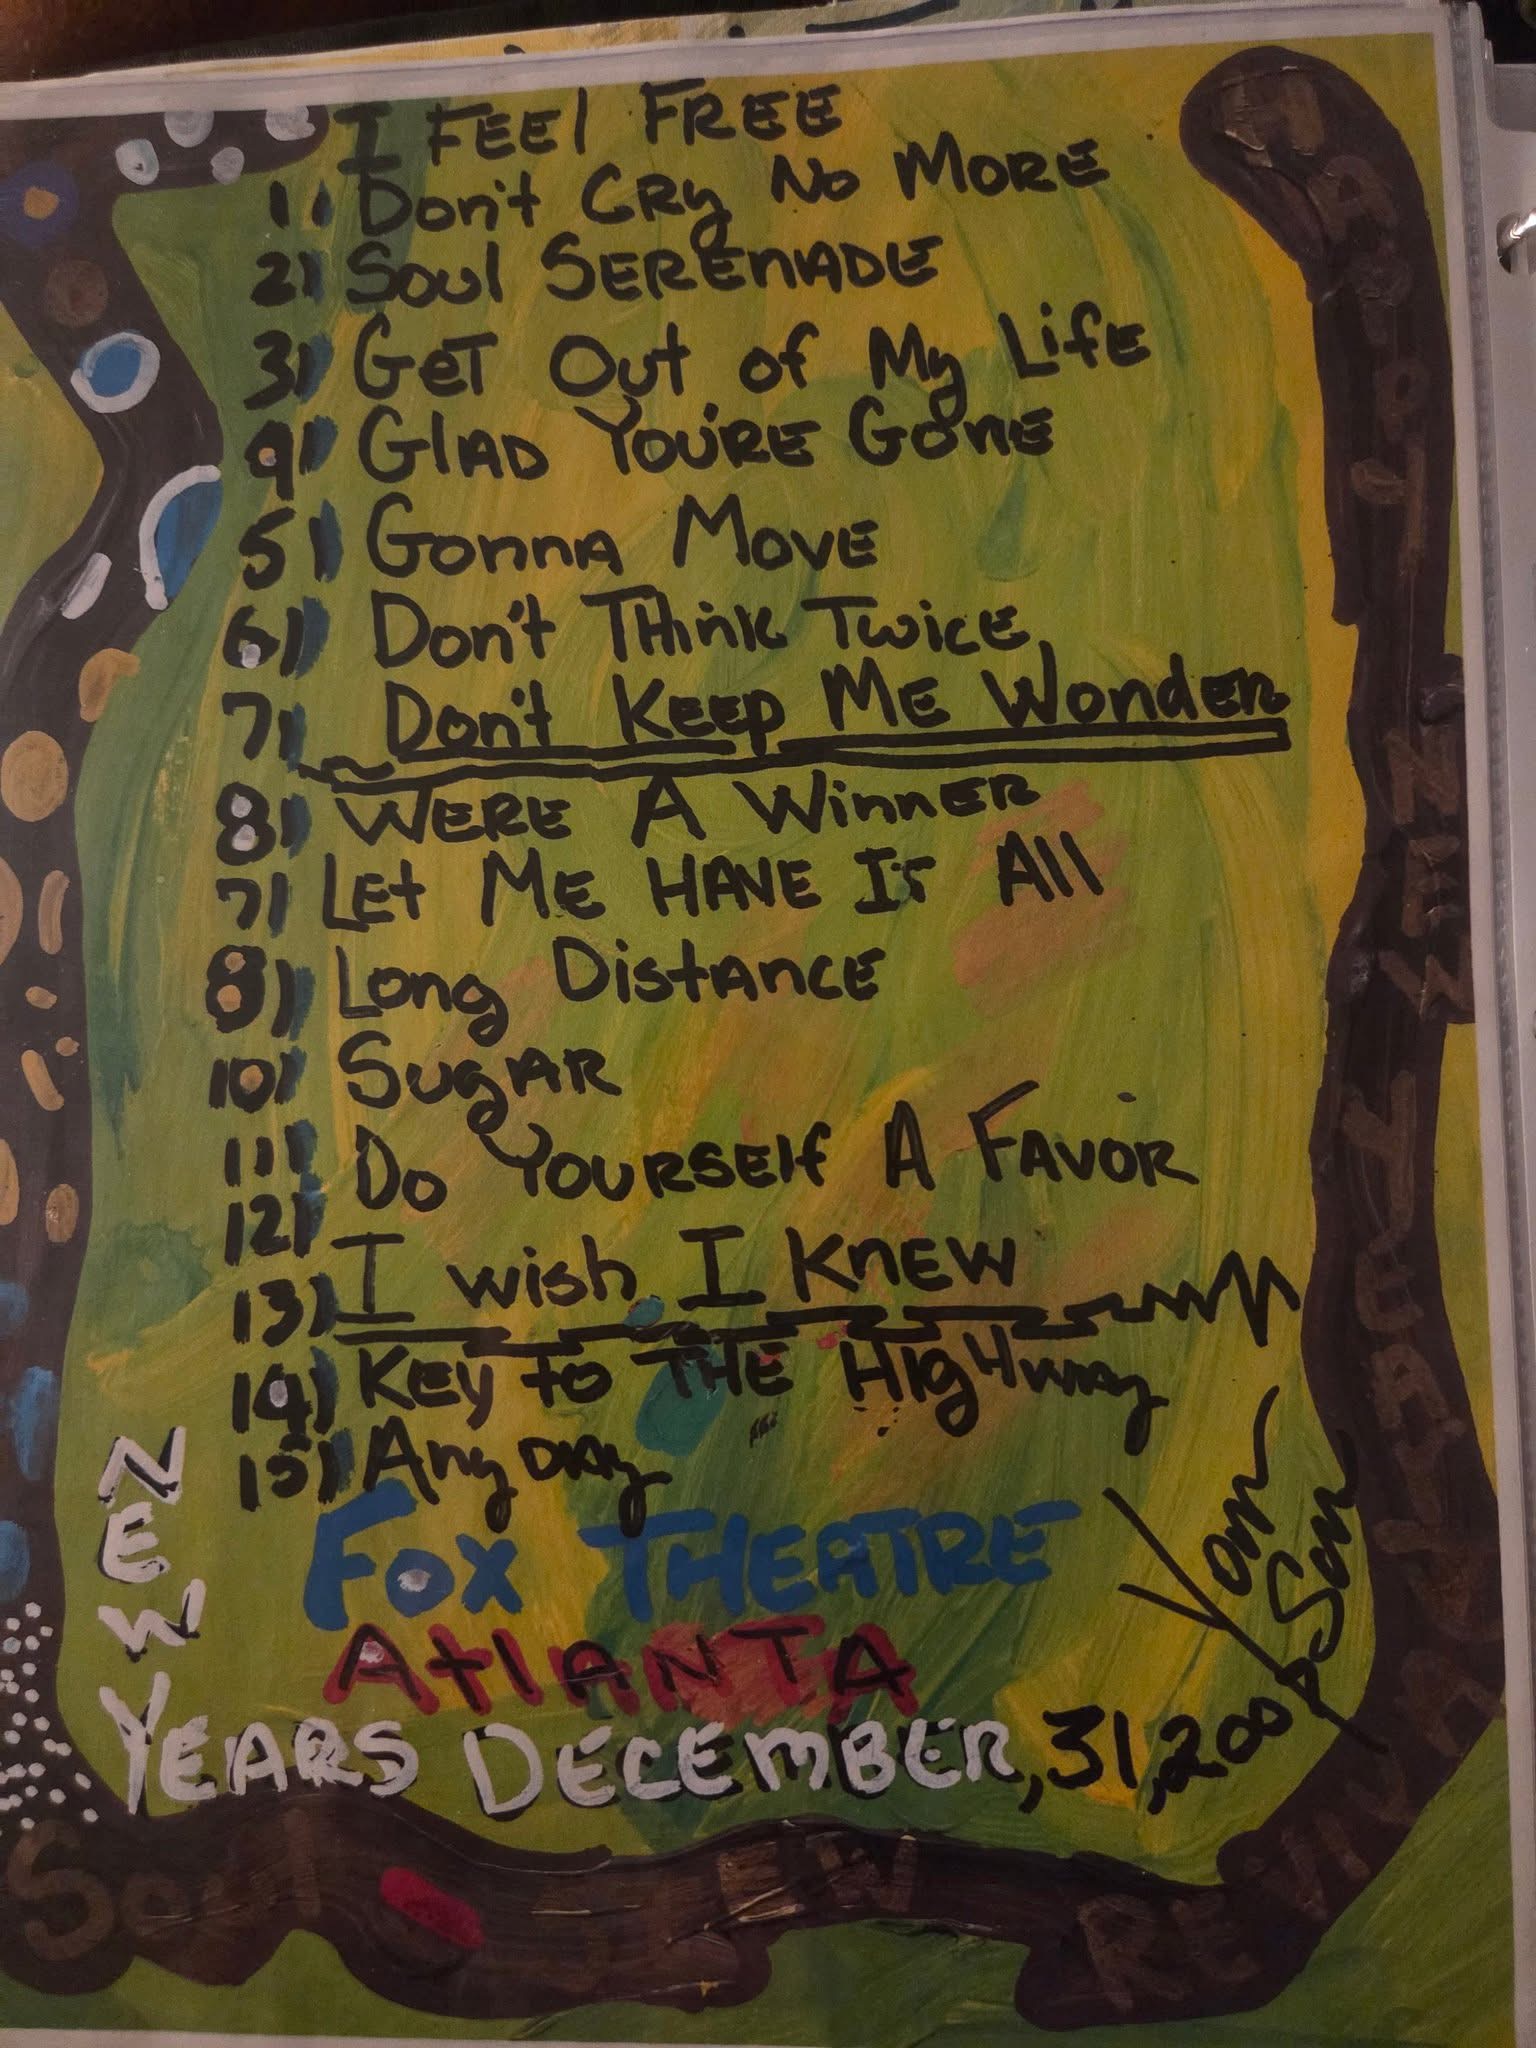 I FEEl FREE
1) Don't CRy No MORE
2) Soul SERENADE
3) GET Out of My LifE
4) GlAD YOU'RE GonE
5) GonnA MOVE
6) Don't THink Twice,
7) Don't KEEp ME WondER
8) WERE A WinnER
7) LEt ME HAVE It All
8) Long DistANCE
10) SugAR
11) Do YOURSElf A FAVOR
12)
13) I wish I KnEW
14) KEy to THE HigHway
15) Any DAy
FOX THEATRE
AtlANTA
NEW
YEARS DECEMBER, 31, 200
HAPPY NEW YEAR
Soul STEW REVIVAL